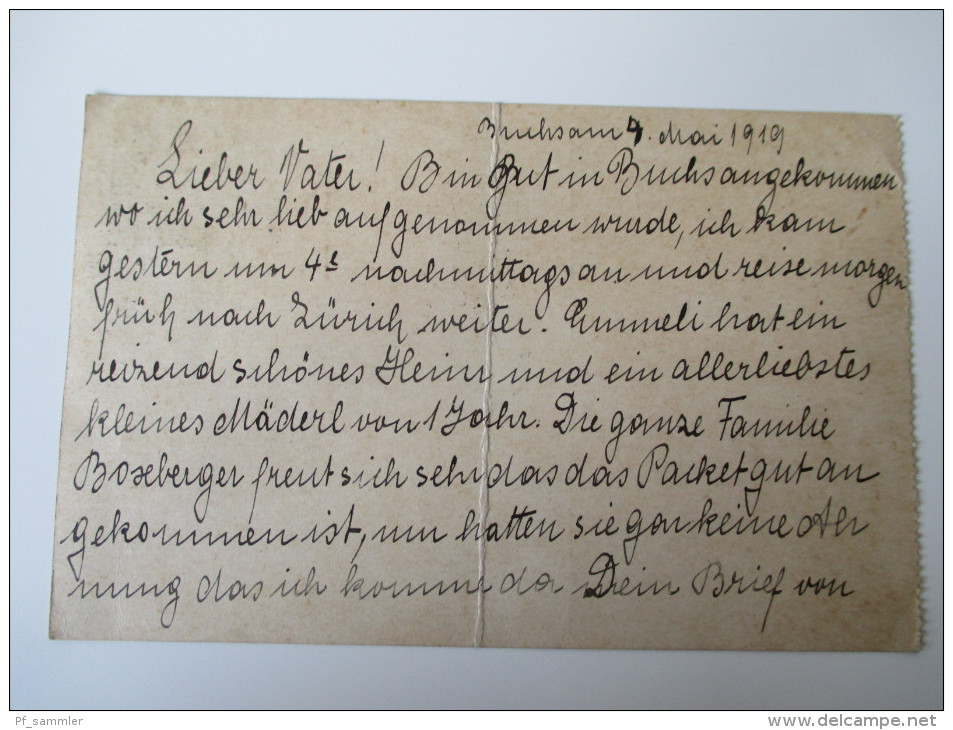 Buchs am 4. Mai 1919
Lieber Vater! Bin gut in Buchs angekommen
wo ich sehr lieb aufgenommen wurde, ich kam
gestern um 4h nachmittags an und reise morgen
früh nach Zürich weiter. Emmeli hat ein
reizend schönes Heim und ein allerliebstes
kleines Mäderl von 1 Jahr. Die ganze Familie
Boxberger freut sich sehr das das Packet gut an
gekommen ist, nur hatten sie gar keine Ah
nung das ich komme da Dein Brief von
Pf_sammler
http://www.delcampe.net